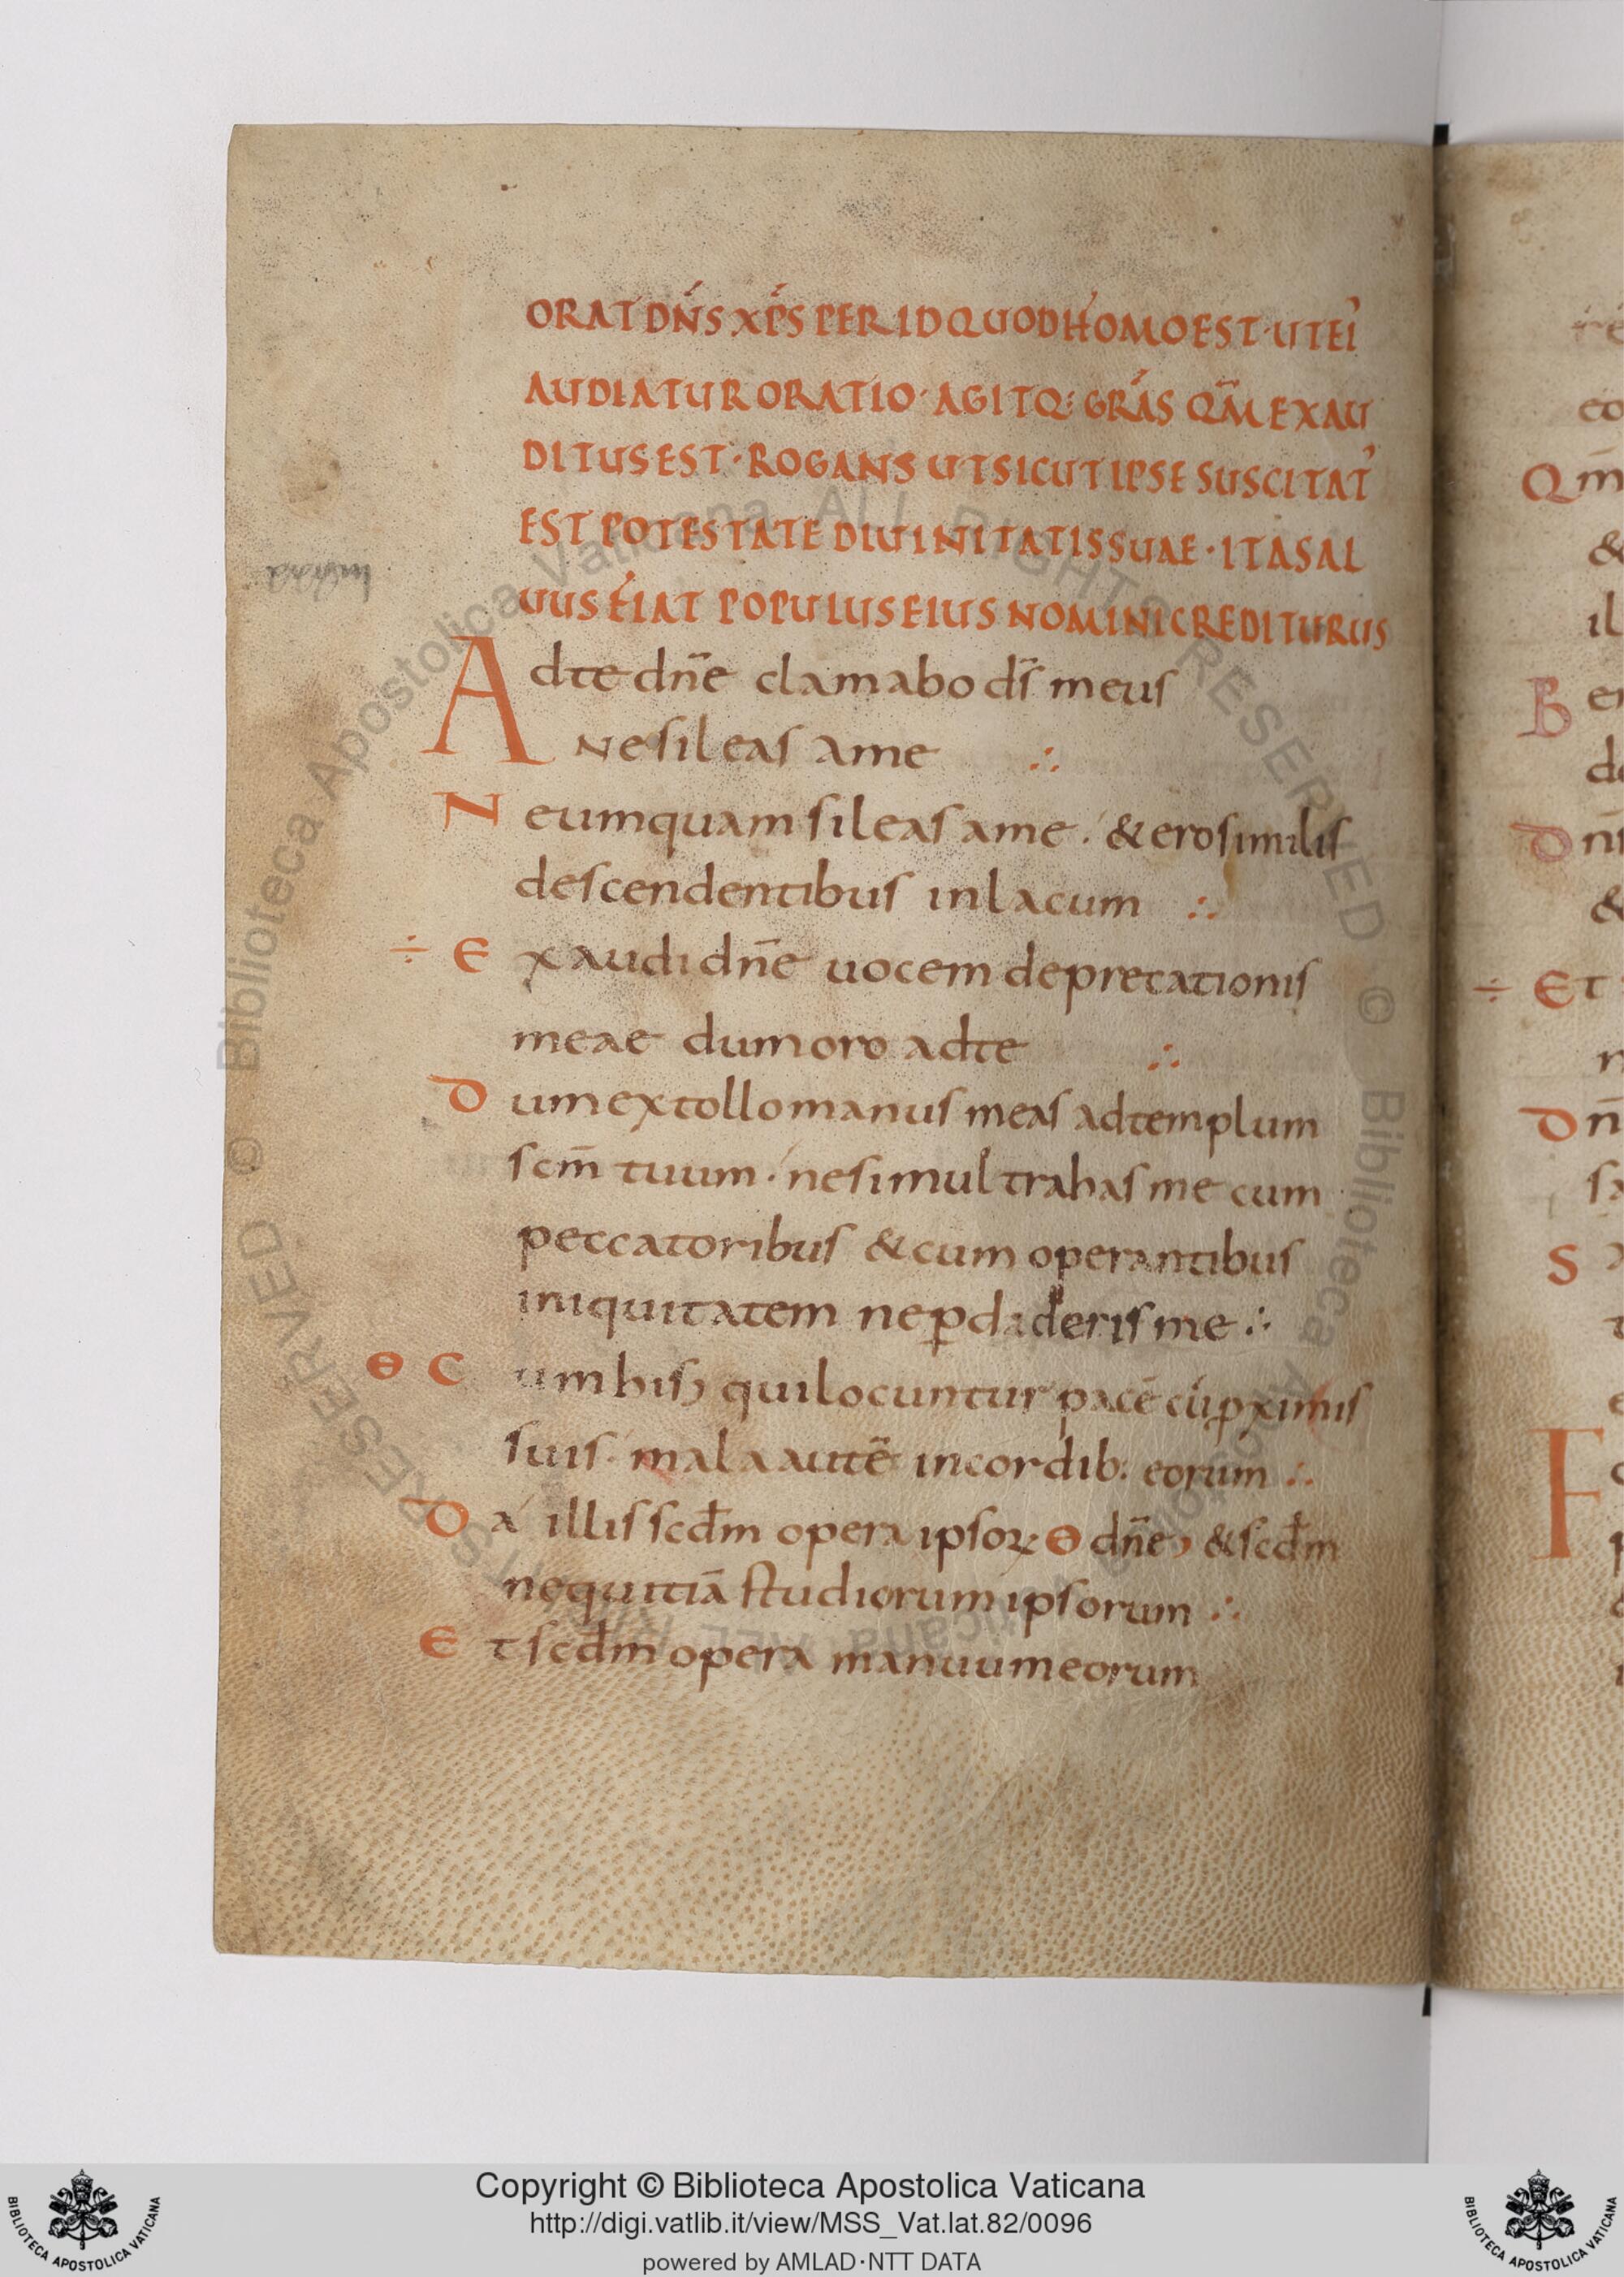 ORAT DN̄S XP̄S PER ID QUOD HOMO EST · UT EI
AUDIATUR ORATIO · AGITQ: GRĀS QM̄ EXAU
DITUS EST · ROGANS UT SICUT IPSE SUSCITAT'
EST POTESTATE DIUINITATIS SUAE · ITA SAL
UUS FIAT POPULUS EIUS NOMINI CREDITURUS
Ad te dn̄e clamabo ds̄ meus
Ne sileas a me ∴
Neumquam sileas a me · & ero similis
descendentibus in lacum ∴
÷ Exaudi dn̄e uocem deprecationis
meae dum oro ad te ∴
Dum extollo manus meas ad templum
scm̄ tuum · ne simul trahas me cum
peccatoribus & cum operantibus
iniquitatem ne ꝑdideris me ∴
Θ Cum his qui locuntur pacē cū ꝓximis
suis · mala autē in cordib: eorum ∴
Da illis scd̄m opera ipsoꝝ Θ dn̄e, & scd̄m
nequitiā studiorum ipsorum ∴
Et scd̄m opera manuum eorum
Copyright © Biblioteca Apostolica Vaticana
http://digi.vatlib.it/view/MSS_Vat.lat.82/0096
powered by AMLAD·NTT DATA